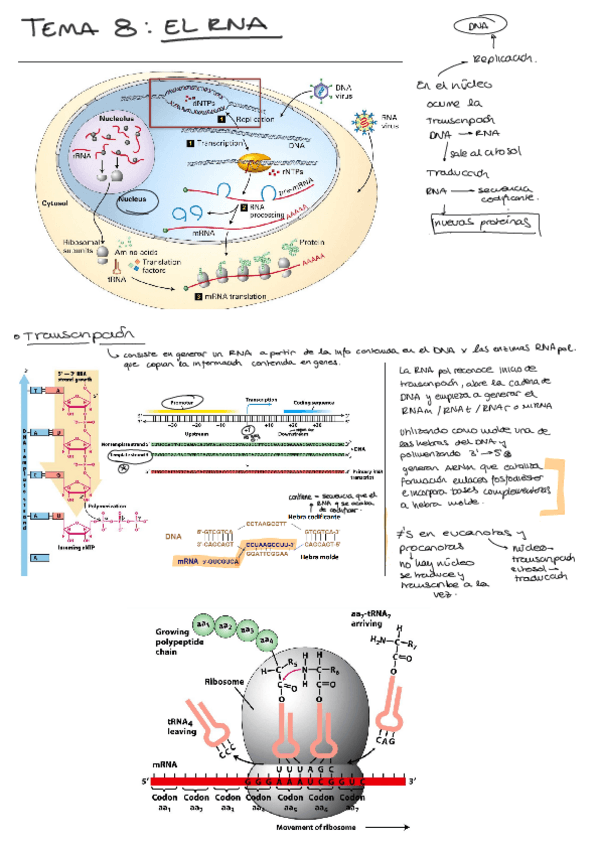 TEMA 8: EL RNA
DNA
Replicación.
En el núcleo
ocurre la
Transcripción
DNA → RNA
sale al citosol
Traducción
RNA → secuencia
codificante.
nuevas proteínas
rNTPs
1 Replication
DNA
virus
RNA
virus
Nucleolus
rRNA
1 Transcription
DNA
rNTPs
Nucleus
pre-mRNA
2 RNA
processing
AAAAA
mRNA
Cytosol
Ribosomal
subunits
Amino acids
Translation
factors
tRNA
Protein
AAAAA
3 mRNA translation
Transcripción
consiste en generar un RNA a partir de la info contenida en el DNA y las enzimas RNA pol.
que copian la información contenida en genes.
5' → 3' RNA
strand growth
DNA template strand
Polymerization
Incoming rNTP
Promoter
Transcription
Coding sequence
-30 -20 -10 +1 +10 +20 +30
Upstream
Downstream
Nontemplate strand 5'
Template strand 3'
DNA
Primary RNA
transcript
contiene = secuencia que el
RNA y se acaba
de codificar.
Hebra codificante
CCTAAGCCTT
DNA
5'-GTCGTCA
CGTCGTCA-3
3'-CAGCAGT
CCUAAGCCUU-3
CAGCAGT-5'
GGATTCGGAA
mRNA 5'-GUCGUCA
Hebra molde
La RNA pol reconoce inicio de
transcripción, abre la cadena de
DNA y empieza a generar el
RNAm / RNAt / RNAr o miRNA
Utilizando como molde una de
las hebras del DNA y
polimerizando 3' → 5'
generan ARNm que cataliza
formación enlaces fosfodiéster
e incorpora bases complementarias
a hebra molde.
≠'s en eucariotas y
procariotas
no hay núcleo
se traduce y
transcribe a la
vez.
núcleo →
transcripción
citosol →
traducción
Growing
polypeptide
chain
aa1 aa2 aa3 aa4
aa7-tRNA7
arriving
Ribosome
tRNA4
leaving
CCC
CAG
UUUAGC
mRNA
5'
GGGAAAUCGGUC
3'
Codon Codon Codon Codon Codon Codon Codon
aa1 aa2 aa3 aa4 aa5 aa6 aa7
Movement of ribosome